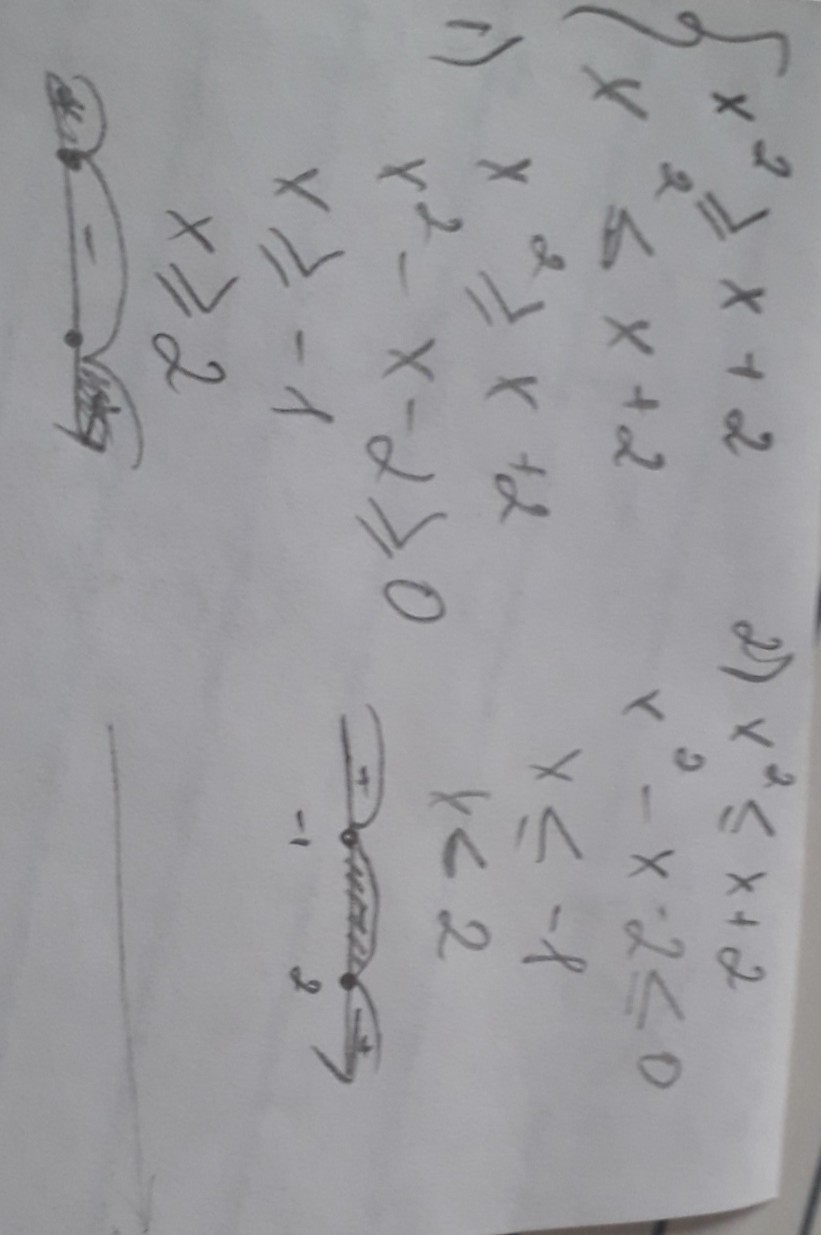 { x² ⩾ x + 2
x² ⩽ x + 2
1) x² ⩾ x + 2
x² - x - 2 ⩾ 0
x ⩾ -1
x ⩾ 2
-
2) x² ≤ x + 2
x² - x - 2 ≤ 0
x ≤ -1
x < 2
+ +
-1 2